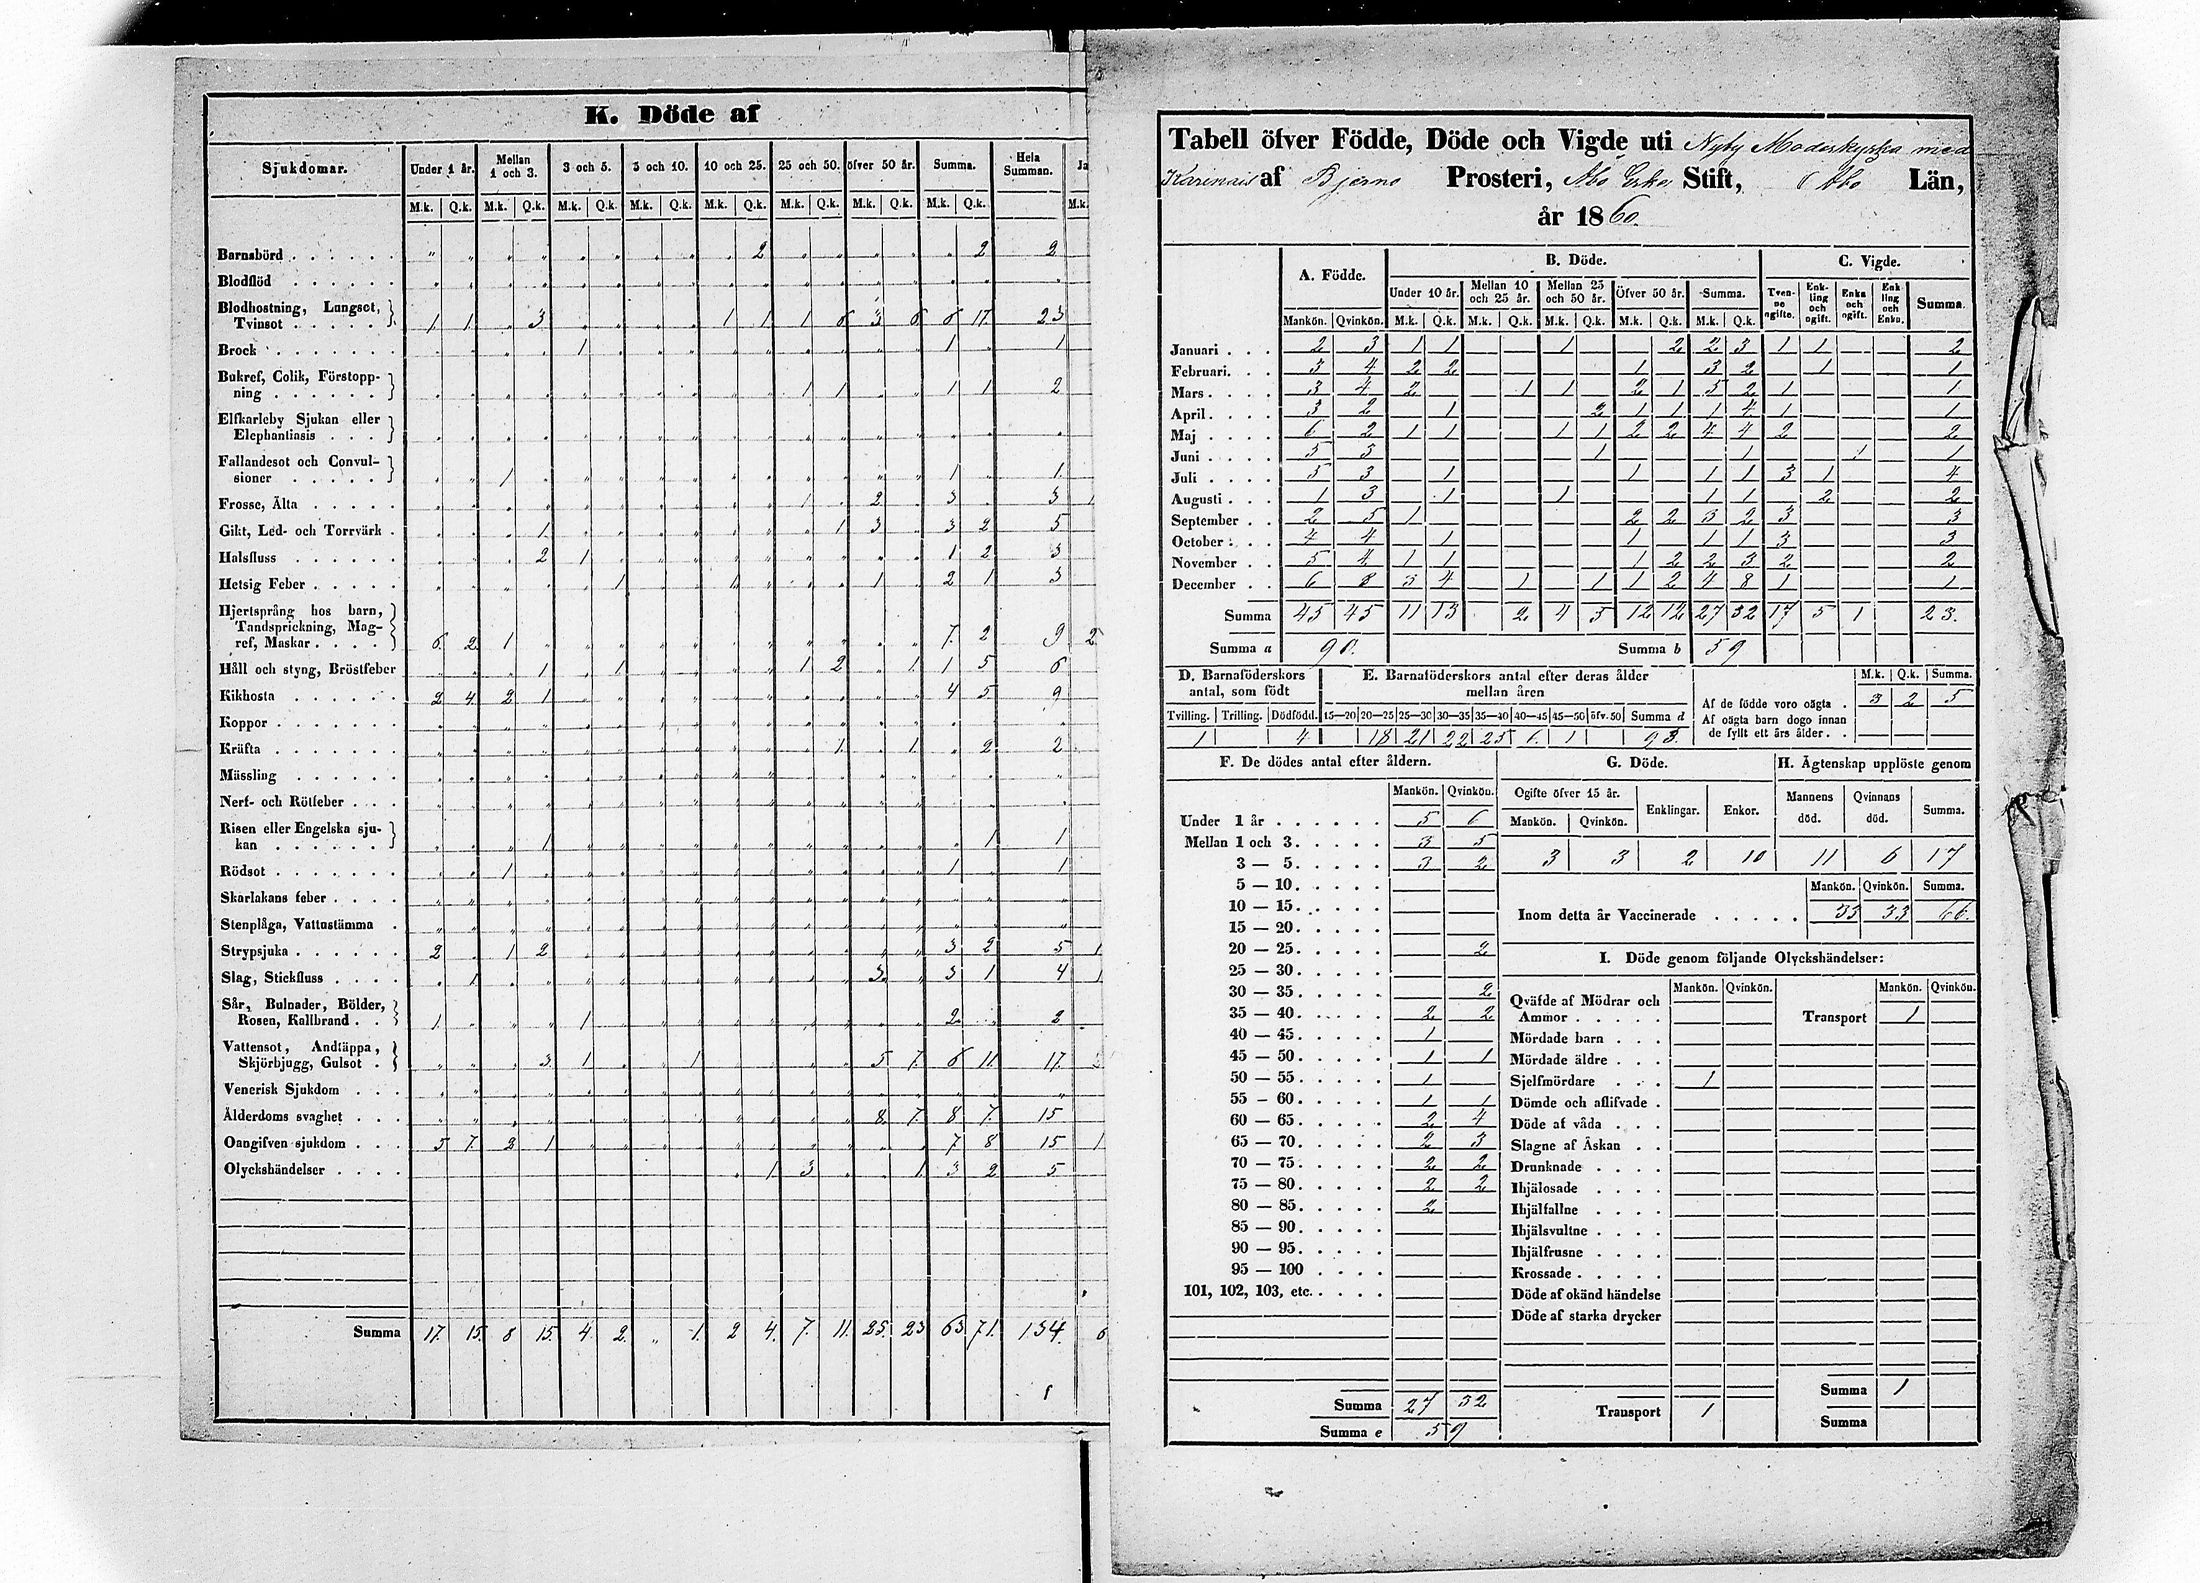 K. Döde af
Sjukdomar. Under 1 år. Mellan 1 och 3. 3 och 5. 5 och 10. 10 och 25. 25 och 50. öfver 50 år. Summa. Hela Summan. Ja
M.k. Q.k. M.k. Q.k. M.k. Q.k. M.k. Q.k. M.k. Q.k. M.k. Q.k. M.k. Q.k. M.k. Q.k. M.k.
Barnsbörd 2 2 2
Blodflöd
Blodhostning, Lungsot,
Tvinsot 1 1 3 1 1 1 6 3 6 6 17 23
Brock 1 1 1
Bukref, Colik, Förstopp-
ning 1 1 1 1 2
Elfkarleby Sjukan eller
Elephantiasis
Fallandesot och Convul-
sioner 1 1 1
Frosse, Älta 1 2 3 3 1
Gikt, Led- och Torrvärk 1 1 3 3 2 5
Halsfluss 2 1 1 2 3
Hetsig Feber 1 1 1 2 1 3
Hjertsprång hos barn,
Tandsprickning, Mag-
ref, Maskar 6 2 1 7 2 9 2
Håll och styng, Bröstfeber 1 1 1 2 1 1 5 6
Kikhosta 2 4 2 1 4 5 9
Koppor
Kräfta 1 1 2 2
Mässling
Nerf- och Rötfeber
Risen eller Engelska sju-
kan 1 1 1
Rödsot 1 1 1
Skarlakans feber
Stenplåga, Vattnstämma
Strypsjuka 2 1 2 3 2 5 1
Slag, Stickfluss 1 3 3 1 4 1
Sår, Bulnader, Bölder,
Rosen, Kallbrand 1 1 2 2
Vattensot, Andtäppa,
Skjörbjugg, Gulsot 3 1 1 5 7 6 11 17
Venerisk Sjukdom
Ålderdoms svaghet 8 7 8 7 15
Oangifven sjukdom 5 7 2 1 7 8 15 1
Olyckshändelser 1 3 1 3 2 5
Summa 17 15 8 15 4 2 " 1 2 4 7 11 25 23 63 71 134 6
Tabell öfver Födde, Döde och Vigde uti Nyby Moderkyrka med
Karinais af Bjerno Prosteri, Åbo Erke Stift, Åbo Län,
år 1860.
A. Födde. B. Döde. C. Vigde.
Under 10 år. Mellan 10 och 25 år. Mellan 25 och 50 år. Öfver 50 år. Summa. Tvenne ogifte. Enkling och ogift. Enka och ogift. Enkling och Enka. Summa.
Mankön. Qvinkön. M.k. Q.k. M.k. Q.k. M.k. Q.k. M.k. Q.k. M.k. Q.k.
Januari 2 3 1 1 1 2 2 3 1 1 2
Februari 3 4 2 2 1 3 2 1 1
Mars 3 4 2 1 1 2 1 5 2 1 1
April 3 2 1 2 1 1 1 4 1 1
Maj 6 2 1 1 1 1 2 2 4 4 2 2
Juni 5 3 1 1 1 1
Juli 5 3 1 1 1 1 3 1 4
Augusti 1 3 1 1 1 1 2 2
September 2 5 1 2 2 3 2 3 3
October 4 4 1 1 1 1 3 3
November 5 4 1 1 1 2 2 3 2 2
December 6 8 3 4 1 1 1 2 4 8 1 1
Summa 45 45 11 13 2 4 5 12 12 27 32 17 5 1 23.
Summa a 90. Summa b 59
D. Barnaföderskors antal, som födt
E. Barnaföderskors antal efter deras ålder mellan åren
M.k. Q.k. Summa.
Af de födde voro oägta 3 2 5
Af oägta barn dogo innan
de fyllt ett års ålder
Tvilling. Trilling. Dödfödd. 15—20 20—25 25—30 30—35 35—40 40—45 45—50 öfv. 50 Summa d
1 4 18 21 22 25 6 1 93.
F. De dödes antal efter åldern. G. Döde. H. Ägtenskap upplöste genom
Mankön. Qvinkön. Ogifte öfver 15 år. Enklingar. Enkor. Mannens död. Qvinnans död. Summa.
Mankön. Qvinkön.
3 3 2 10 11 6 17
Under 1 år 5 6
Mellan 1 och 3 3 5
3 — 5 3 2
5 — 10
10 — 15
15 — 20
20 — 25 2
25 — 30
30 — 35 2
35 — 40 2 2
40 — 45 1
45 — 50 1 1
50 — 55 1
55 — 60 1 1
60 — 65 2 4
65 — 70 2 3
70 — 75 2 2
75 — 80 2 2
80 — 85 2
85 — 90
90 — 95
95 — 100
101, 102, 103, etc.
Summa 27 32
Summa e 59
Mankön. Qvinkön. Summa.
Inom detta år Vaccinerade 33 33 66.
I. Döde genom följande Olyckshändelser:
Mankön. Qvinkön. Mankön. Qvinkön.
Qväfde af Mödrar och
Ammor Transport 1
Mördade barn
Mördade äldre
Sjelfmördare 1
Dömde och aflifvade
Döde af våda
Slagne af Åskan
Drunknade
Ihjälosade
Ihjälfallne
Ihjälsvultne
Ihjälfrusne
Krossade
Döde af okänd händelse
Döde af starka drycker
Summa 1
Transport 1
Summa